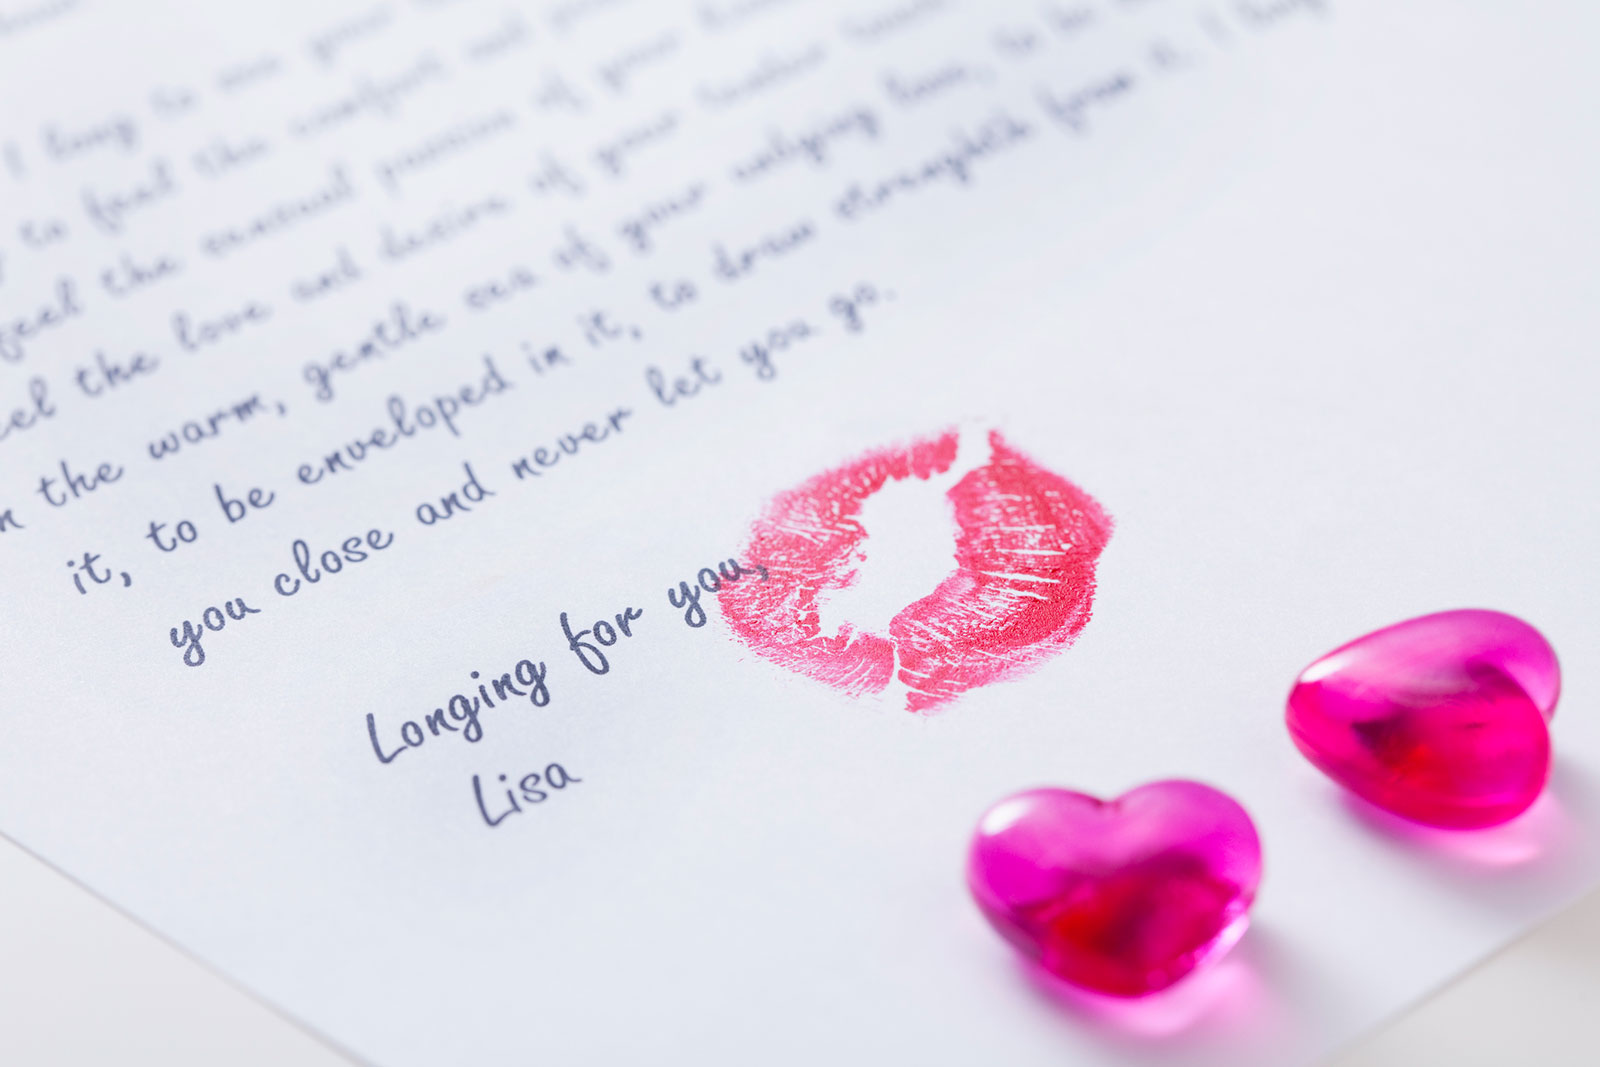 I long to see your
to feel the comfort and
feel the sensual passion of your
feel the love and desire of your tender
in the warm, gentle sea of your undying love, to be
it, to be enveloped in it, to draw strength from it. I long
you close and never let you go.
Longing for you,
Lisa